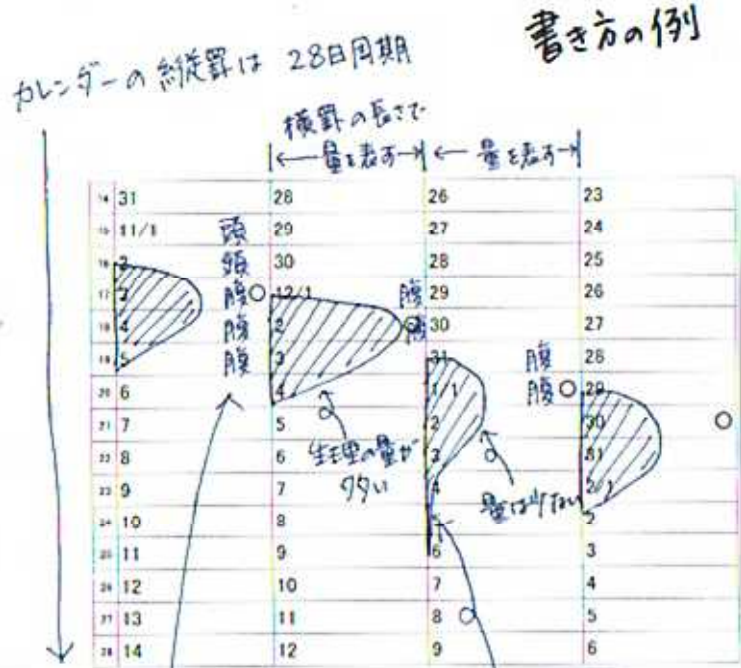 書き方の例
カレンダーの縦罫は 28日周期
横罫の長さで
量を表す 量を表す
14 31 28 26 23
15 11/1 頭 29 27 24
16 2 頭 30 28 25
17 3 腹 12/1 腹 29 26
18 4 腹 2 腹 30 27
19 5 腹 3 31 腹 28
20 6 4 1/1 腹 29
21 7 5 2 30
22 8 6 3 31
23 9 7 4 2/1
24 10 8 5 2
25 11 9 6 3
26 12 10 7 4
27 13 11 8 5
28 14 12 9 6
生理の量が
多い
量は少ない